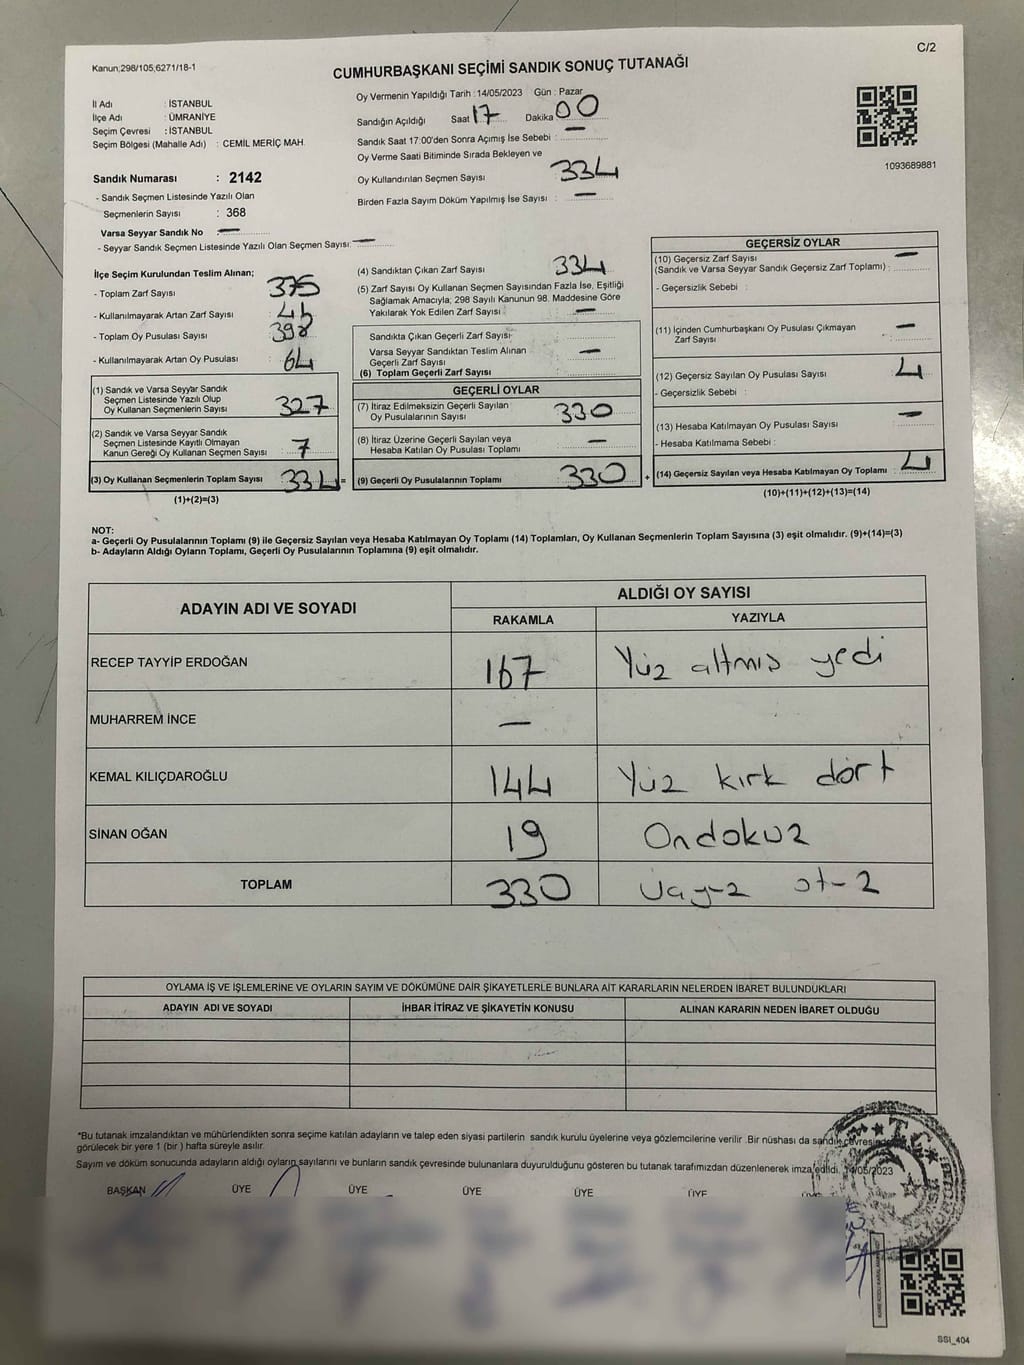 C/2
Kanun:298/105,6271/18-1
CUMHURBAŞKANI SEÇİMİ SANDIK SONUÇ TUTANAĞI
İl Adı : İSTANBUL
İlçe Adı : ÜMRANİYE
Seçim Çevresi : İSTANBUL
Seçim Bölgesi (Mahalle Adı) : CEMİL MERİÇ MAH.
Sandık Numarası : 2142
- Sandık Seçmen Listesinde Yazılı Olan
Seçmenlerin Sayısı : 368
Varsa Seyyar Sandık No —
- Seyyar Sandık Seçmen Listesinde Yazılı Olan Seçmen Sayısı: —
Oy Vermenin Yapıldığı Tarih : 14/05/2023 Gün : Pazar
Sandığın Açıldığı Saat 17 Dakika 00
Sandık Saat 17:00'den Sonra Açımış İse Sebebi : —
Oy Verme Saati Bitiminde Sırada Bekleyen ve
Oy Kullandırılan Seçmen Sayısı 334
Birden Fazla Sayım Döküm Yapılmış İse Sayısı : —
1093689881
İlçe Seçim Kurulundan Teslim Alınan;
- Toplam Zarf Sayısı 375
- Kullanılmayarak Artan Zarf Sayısı
- Toplam Oy Pusulası Sayısı 398
- Kullanılmayarak Artan Oy Pusulası 64
(1) Sandık ve Varsa Seyyar Sandık
Seçmen Listesinde Yazılı Olup
Oy Kullanan Seçmenlerin Sayısı 327
(2) Sandık ve Varsa Seyyar Sandık
Seçmen Listesinde Kayıtlı Olmayan
Kanun Gereği Oy Kullanan Seçmen Sayısı : 7
(3) Oy Kullanan Seçmenlerin Toplam Sayısı : 334 =
(1)+(2)=(3)
(4) Sandıktan Çıkan Zarf Sayısı 334
(5) Zarf Sayısı Oy Kullanan Seçmen Sayısından Fazla İse, Eşitliği
Sağlamak Amacıyla, 298 Sayılı Kanunun 98. Maddesine Göre
Yakılarak Yok Edilen Zarf Sayısı : —
Sandıkta Çıkan Geçerli Zarf Sayısı
Varsa Seyyar Sandıktan Teslim Alınan
Geçerli Zarf Sayısı —
(6) Toplam Geçerli Zarf Sayısı
GEÇERLİ OYLAR
(7) İtiraz Edilmeksizin Geçerli Sayılan
Oy Pusulalarının Sayısı 330
(8) İtiraz Üzerine Geçerli Sayılan veya
Hesaba Katılan Oy Pusulası Toplamı —
(9) Geçerli Oy Pusulalarının Toplamı 330 +
GEÇERSİZ OYLAR
(10) Geçersiz Zarf Sayısı —
(Sandık ve Varsa Seyyar Sandık Geçersiz Zarf Toplamı) :
- Geçersizlik Sebebi :
(11) İçinden Cumhurbaşkanı Oy Pusulası Çıkmayan
Zarf Sayısı —
(12) Geçersiz Sayılan Oy Pusulası Sayısı 4
- Geçersizlik Sebebi :
(13) Hesaba Katılmayan Oy Pusulası Sayısı —
- Hesaba Katılmama Sebebi :
(14) Geçersiz Sayılan veya Hesaba Katılmayan Oy Toplamı : 4
(10)+(11)+(12)+(13)=(14)
NOT:
a- Geçerli Oy Pusulalarının Toplamı (9) ile Geçersiz Sayılan veya Hesaba Katılmayan Oy Toplamı (14) Toplamları, Oy Kullanan Seçmenlerin Toplam Sayısına (3) eşit olmalıdır. (9)+(14)=(3)
b- Adayların Aldığı Oyların Toplamı, Geçerli Oy Pusulalarının Toplamına (9) eşit olmalıdır.
ADAYIN ADI VE SOYADI ALDIĞI OY SAYISI
RAKAMLA YAZIYLA
RECEP TAYYİP ERDOĞAN 167 Yüz altmış yedi
MUHARREM İNCE —
KEMAL KILIÇDAROĞLU 144 Yüz kırk dört
SİNAN OĞAN 19 Ondokuz
TOPLAM 330
OYLAMA İŞ VE İŞLEMLERİNE VE OYLARIN SAYIM VE DÖKÜMÜNE DAİR ŞİKAYETLERLE BUNLARA AİT KARARLARIN NELERDEN İBARET BULUNDUKLARI
ADAYIN ADI VE SOYADI İHBAR İTİRAZ VE ŞİKAYETİN KONUSU ALINAN KARARIN NEDEN İBARET OLDUĞU
*Bu tutanak imzalandıktan ve mühürlendikten sonra seçime katılan adayların ve talep eden siyasi partilerin sandık kurulu üyelerine veya gözlemcilerine verilir .Bir nüshası da sandık çevresinde
görülecek bir yere 1 (bir ) hafta süreyle asılır.
Sayım ve döküm sonucunda adayların aldığı oyların sayılarını ve bunların sandık çevresinde bulunanlara duyurulduğunu gösteren bu tutanak tarafımızdan düzenlenerek imza edildi. 14/05/2023
BAŞKAN ÜYE ÜYE ÜYE ÜYE ÜYE
T.C.
SSİ_404